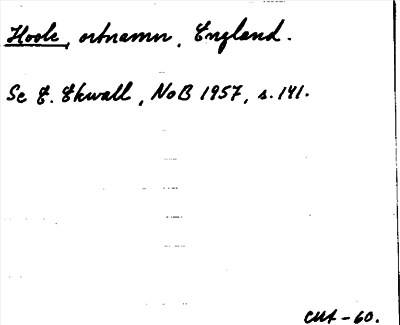 Hoole, ortnamn, England.
Se E. Ekwall, NoB 1957, s. 141.
CMt - 60.